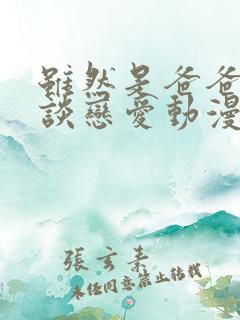 雖然是爸爸
談戀愛動漫
張玄素
未任同意禁止轉載